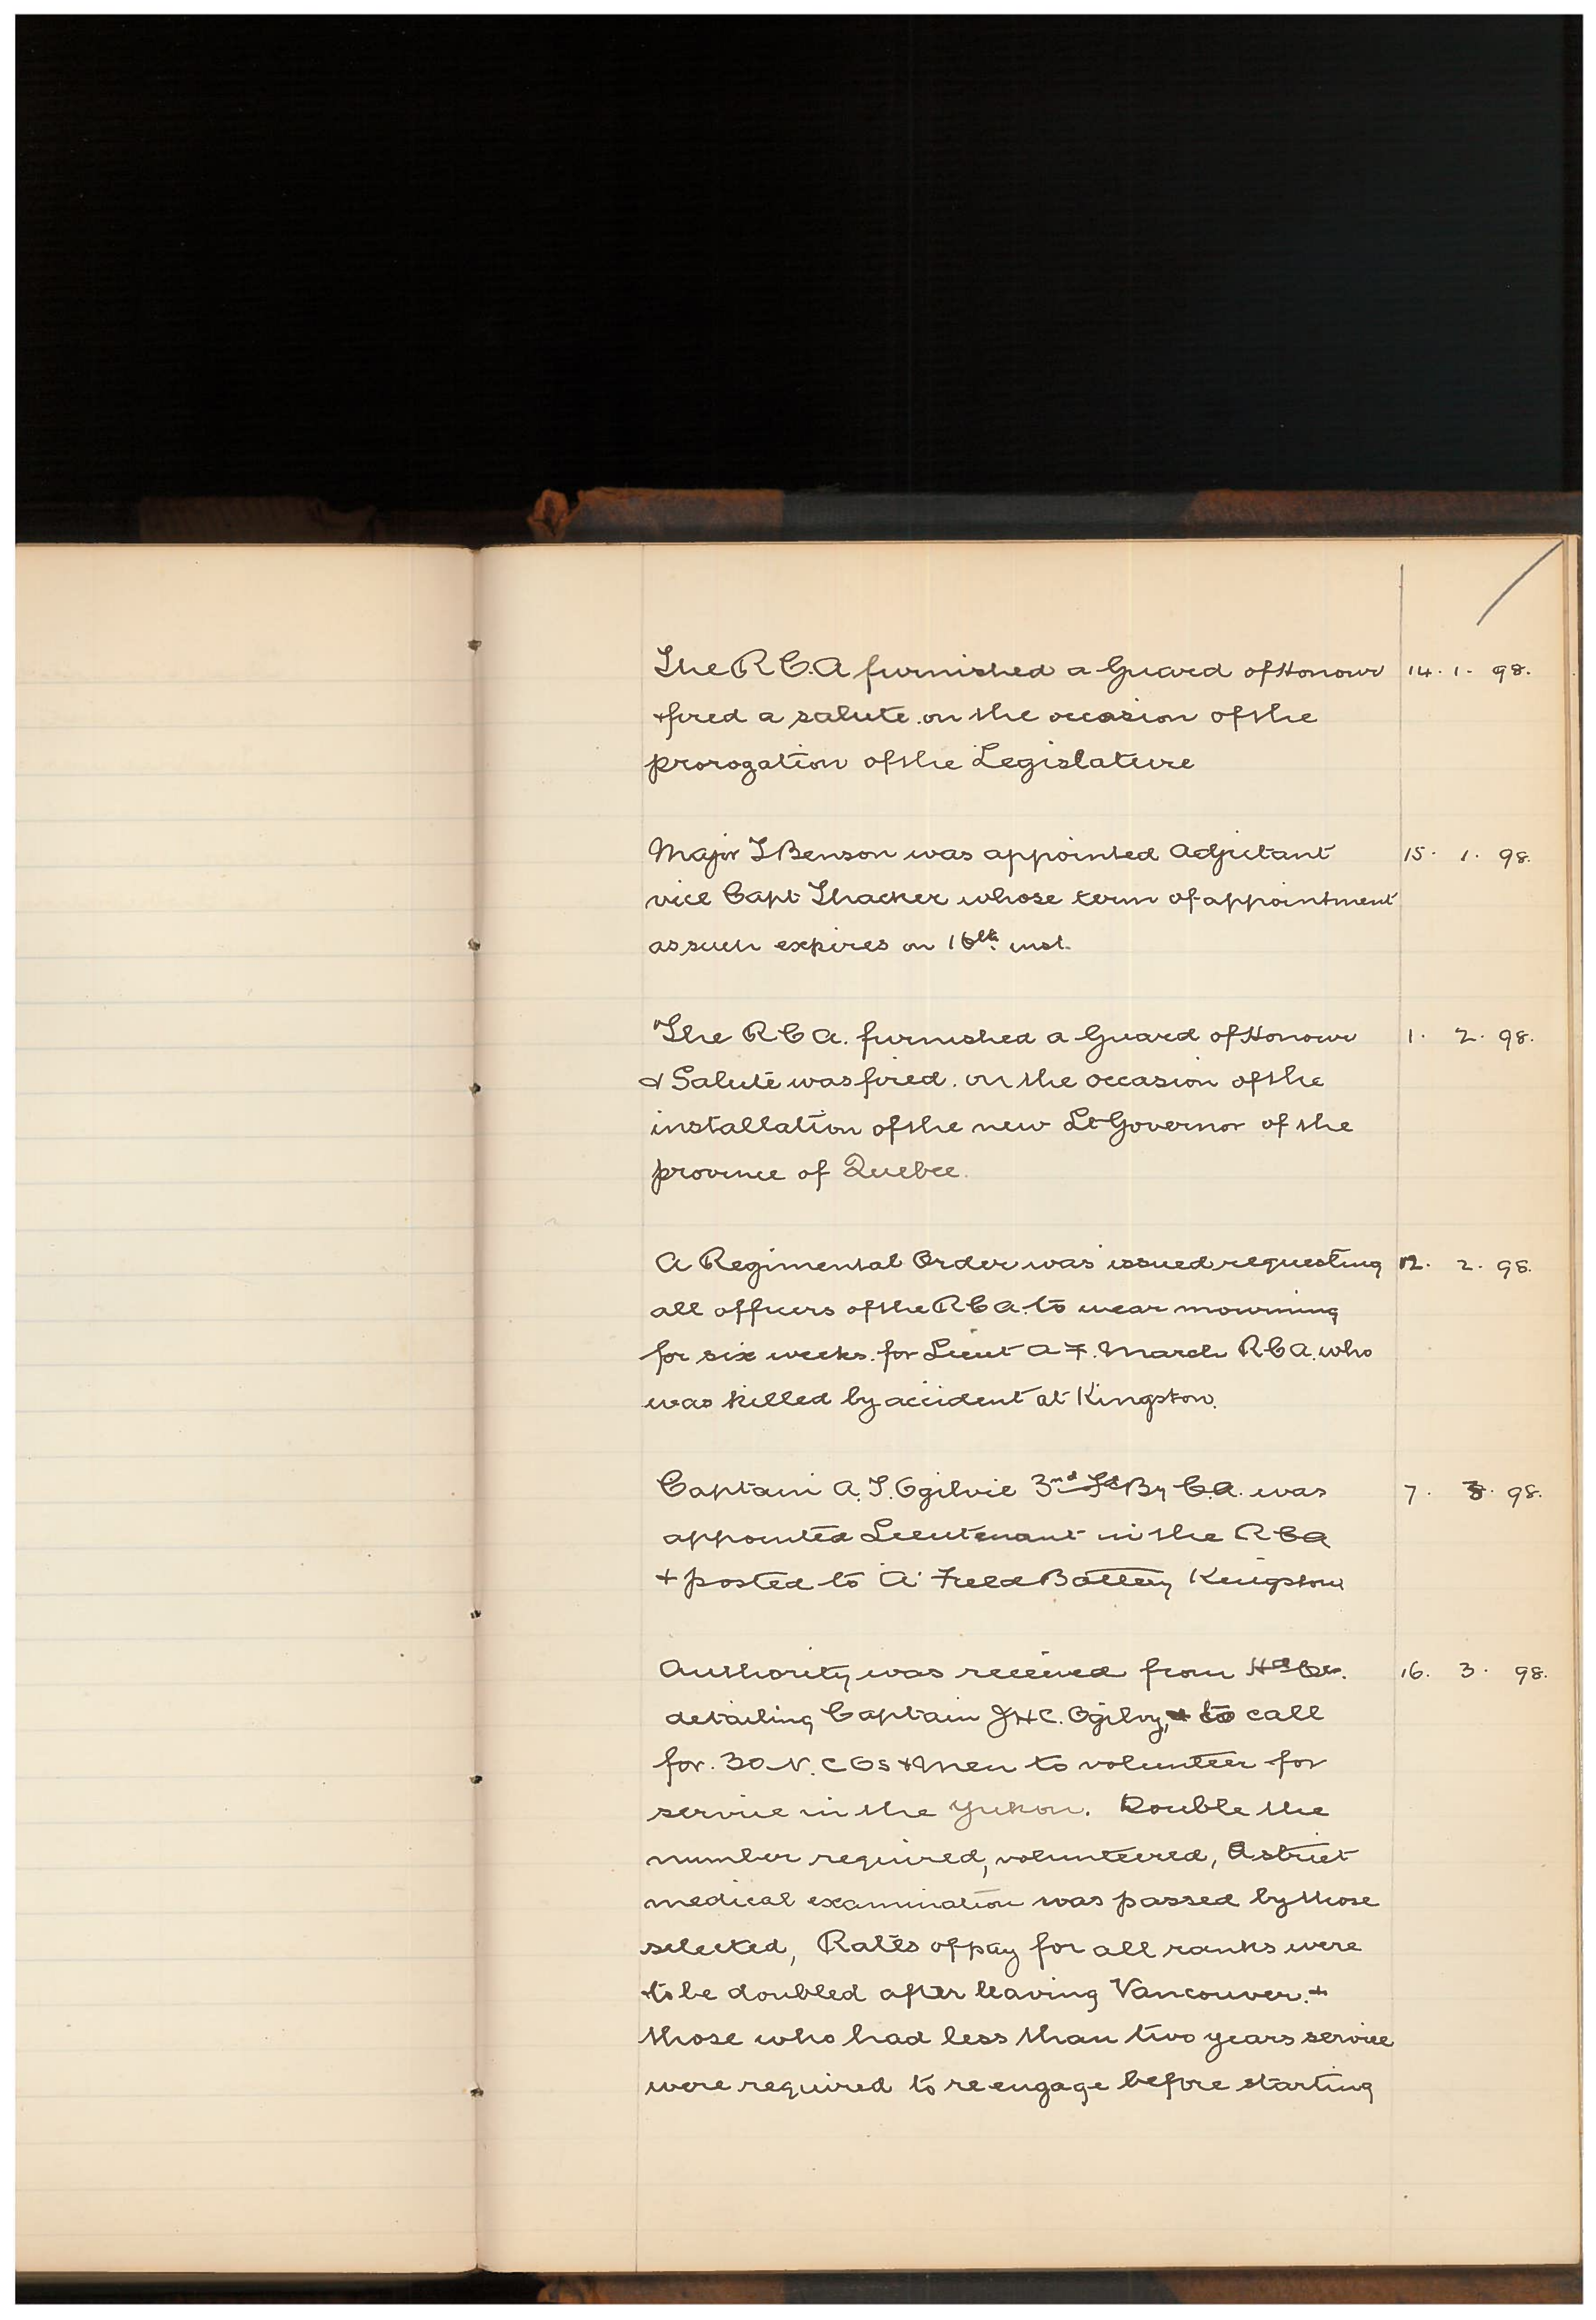 The R C.A furnished a Guard of Honour 14. 1. 98.
+ fired a salute on the occasion of the
prorogation of the Legislature
Major T Benson was appointed Adjutant 15. 1. 98.
vice Capt Thacker whose term of appointment
as such expires on 16th inst.
The R C A. furnished a Guard of Honour 1. 2. 98.
& Salute was fired. on the occasion of the
installation of the new Lt Governor of the
province of Quebec.
A Regimental Order was issued requesting 12. 2. 98.
all officers of the R C A. to wear mourning
for six weeks. for Lieut A F. March R C A. who
was killed by accident at Kingston.
Captain A. T. Ogilvie 3rd Fd By C.A. was 7. 3. 98.
appointed Lieutenant in the R C A
+ posted to 'A' Field Battery Kingston
Authority was received from 16. 3. 98.
detailing Captain J H C. Ogilvy, to call
for. 30 N. C Os + Men to volunteer for
service in the Yukon. Double the
number required, volunteered, A strict
medical examination was passed by those
selected, Rates of pay for all ranks were
to be doubled after leaving Vancouver. +
those who had less than two years service
were required to re engage before starting